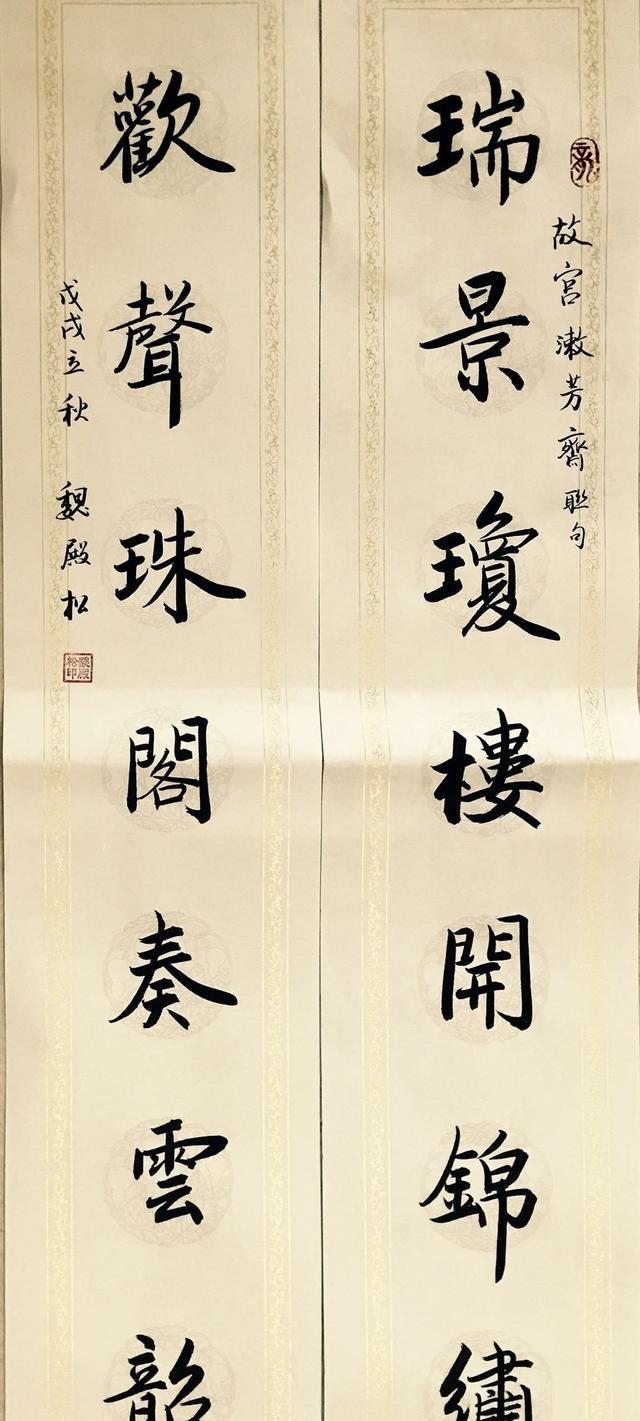 故宮漱芳齋聯句
瑞景瓊樓開錦繡
歡聲珠閣奏雲韶
戊戌立秋 魏殿松
魏殿松印